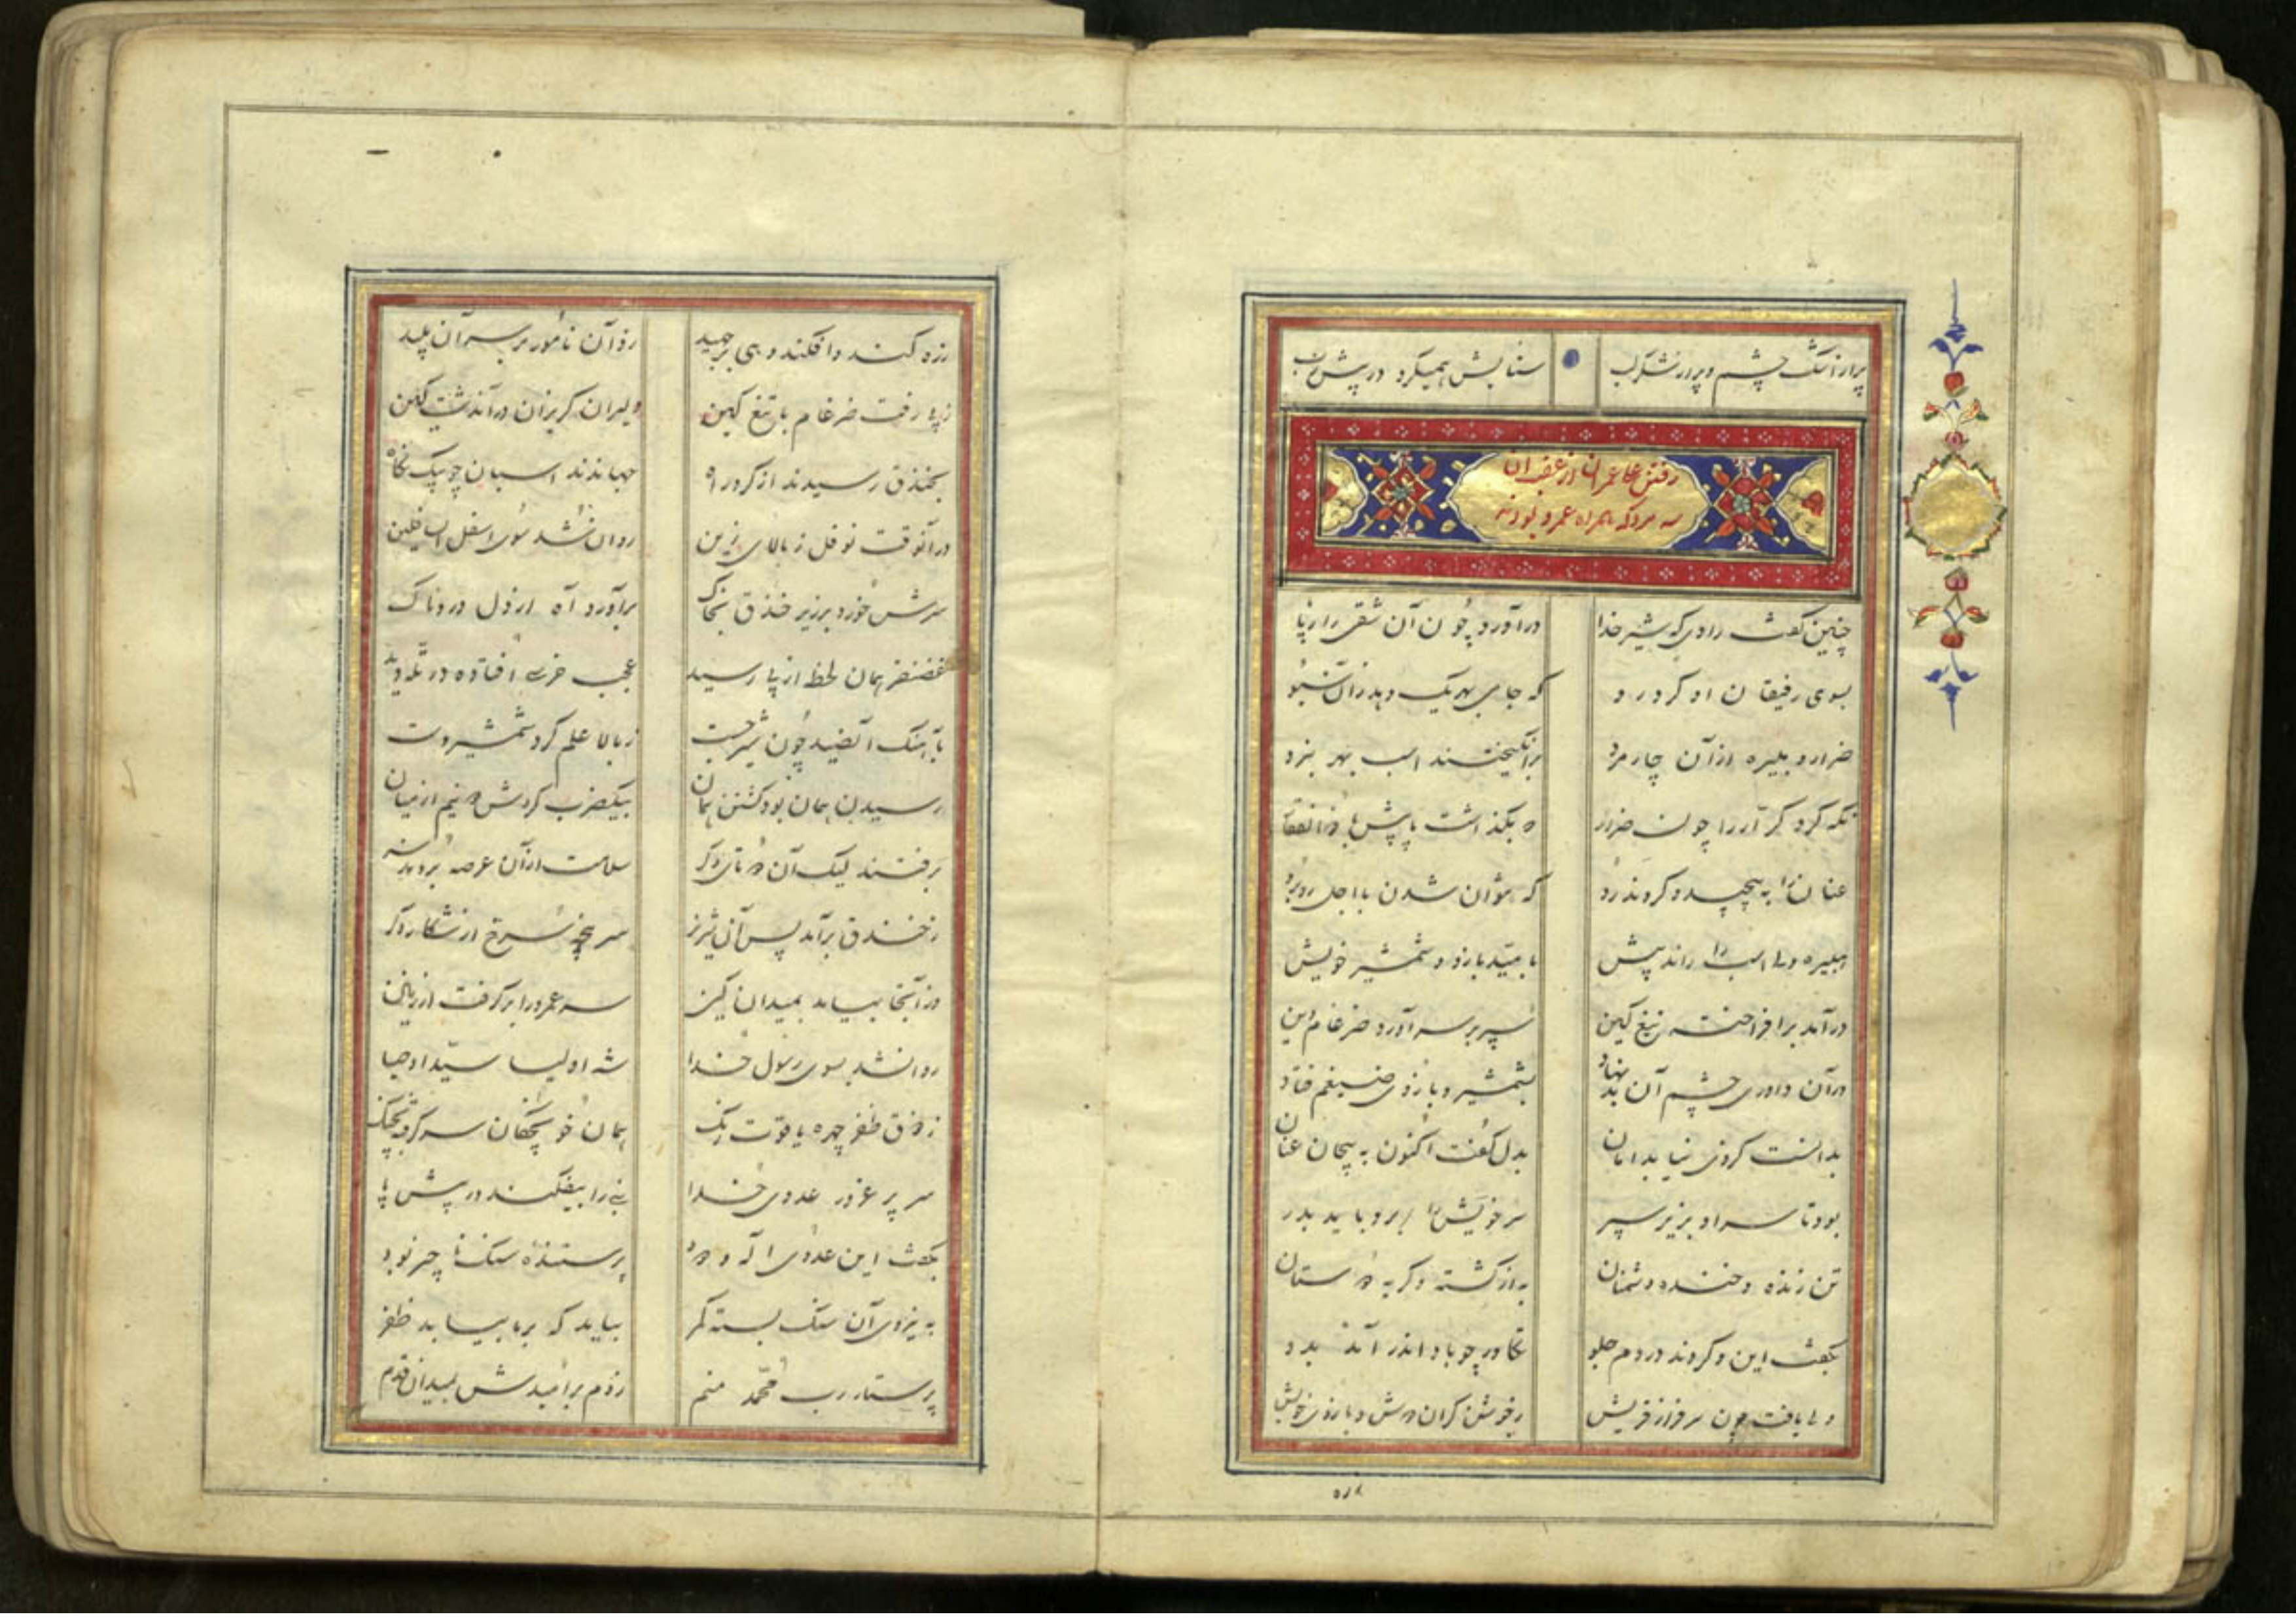 پر از اشک چشم و پر از شکر لب ستایش همیکرد در پیش رب
رفتن علی عمران از عقب آن
سه مرد که همراه عمرو بودند
چنین گفت راوی که شیر خدا در آورد چون آن شقی را ز پا
بسوی رفیقان او کرد رو که جای بهر یک دهد زان
ضرار و هبیره از آن چار مرد برانگیختند اسب بهر نبرد
نگه کرد کرار را چون ضرار نگذاشت پا پیش با ذوالفقار
عنان را به پیچید و کردند رو که نتوان شدن با اجل روبرو
هبیره ولی اسب را راند پیش بامید بازو و شمشیر خویش
در آمد برافراخته تیغ کین سپر بر سر آورد ضرغام دین
در آن داوری چشم آن بد نهاد بشمشیر و بازوی ضیغم فتاد
بدانست کزوی نیابد امان بدل گفت اکنون به پیچان عنان
بود تا سر او بزیر سپر سر خویش را برد باید بدر
تن زنده و خنده دشمنان به از کشته و گریه دوستان
بگفت این و کردند در دم جلو تکاور چو باد اندر آمد بدو
ولی یافت چون سرفراز قریش
رده کند و افکند و پی برجهید زد آن نامور بر سر آن پلید
ز پی رفت ضرغام با تیغ کین دلیران گریزان در آن دشت کین
بخندق رسیدند از گرد راه جهاندند اسبان چو پیک نگاه
در آنوقت نوفل ز بالای زین روان شد سوی اسفل السافلین
سرش خورد بر زیر خندق بخاک برآورد آه از دل دردناک
غضنفر همان لحظه از پی رسید عجب خرسی افتاده در تله دید
بآهنگ آن صید چون شیر جست ز بالا علم کرد شمشیر و دست
رسیدن همان بود کشتن همان بیکضرب کردش دو نیم از میان
برفتند لیک آن دو تای دگر سلامت از آن عرصه بردند سر
ز خندق برآمد پس آن شیر نر سر پنجه سرخ از شکار دگر
وز آنجا بیامد بمیدان کین سر عمرو را برگرفت از زمین
روانشد سوی رسول خدا شه اولیا سید اوصیا
ز ذوق ظفر چهره یاقوت رنگ همان خون چکان سر گرفته بچنگ
سر پر غرور عدوی خدا نبی را بیفکند در پیش پا
بگفت این عدوی اله ودود پرستنده سنگ ناچیز بود
به نیروی آن سنگ بسته کمر بیامد که بر ما بیابد ظفر
پرستار رب محمد منم زدم بر امیدش بمیدان قدم